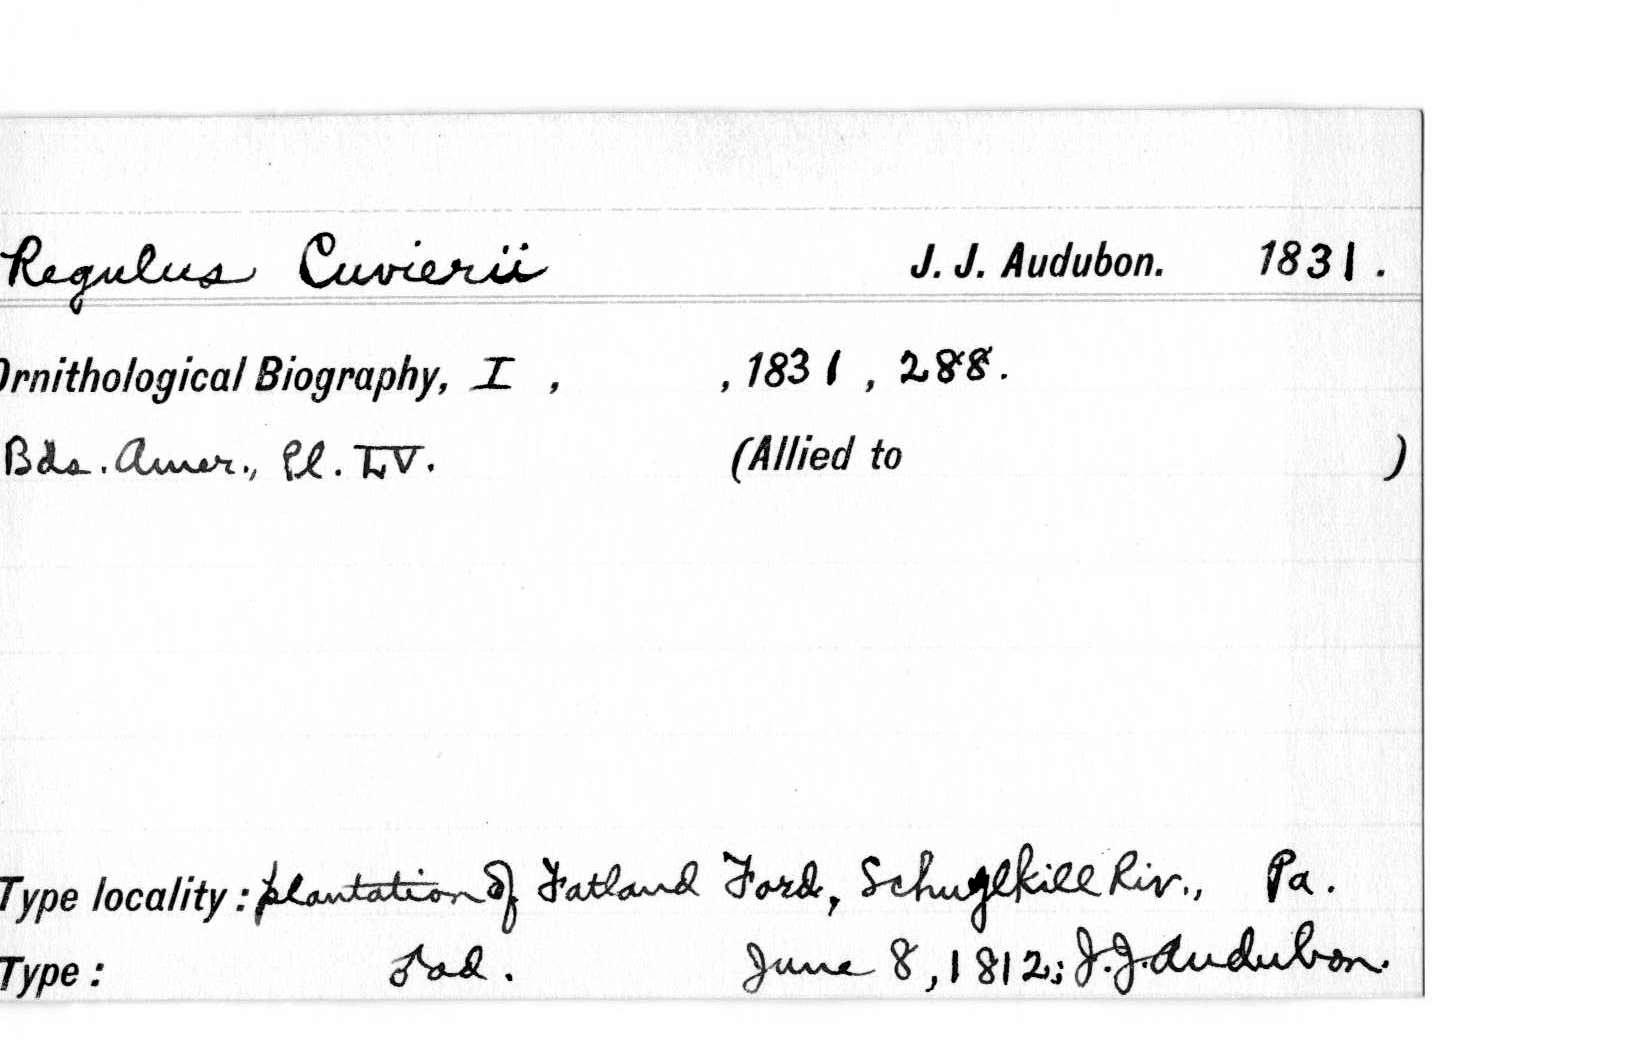 Regulus Cuvierii J. J. Audubon. 1831.
Ornithological Biography, I , , 1831 , 288.
Bds. Amer., Pl. LV. (Allied to )
Type locality: plantation of Fatland Ford, Schuylkill Riv., Pa.
Type: ad. June 8, 1812; J. J. Audubon.